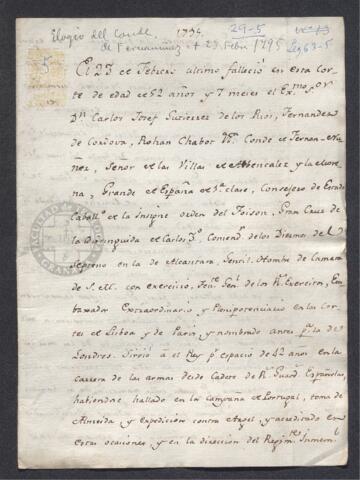 Elogio del Conde 1795. 29-5
de Fernannúñez + 23 Febro 1795 Leg 63-5
5
El 23 de Febrero ultimo falleció en esta Cor
te de edad de 52 años y 7 meses el Exmo Sor
Dn Carlos Josef Gutierrez de los Rios, Fernandez
de Cordova, Rohan Chabot &a. Conde de Fernan-Nu
ñez, Señor de las Villas de Abencalez y la More
na, Grande de España de 1a clase, Consejero de Estado
Caballo de la Insigne orden del Toison, Gran Cruz de
la distinguida de Carlos 3o, Comendr de los Diezmos del
Septeno en la de Alcantara, Gentil-Hombe de Camara
de S. M. con exercicio, Tene Genl de los Rs Exercitos, Em
baxador Extraordinario y Plenipotenciario en las Cor
tes de Lisboa y de Paris, y nombrado antes pa la de
Londres. Sirvió á el Rey pr espacio de 42 años en la
carrera de las armas desde Cadete de Rs Guards Españolas,
habiendose hallado en la Campaña de Portugal, toma de
Almeida y expedicion contra Argel, y acreditado en
estas ocasiones, y en la direccion del Regimto Inmeml